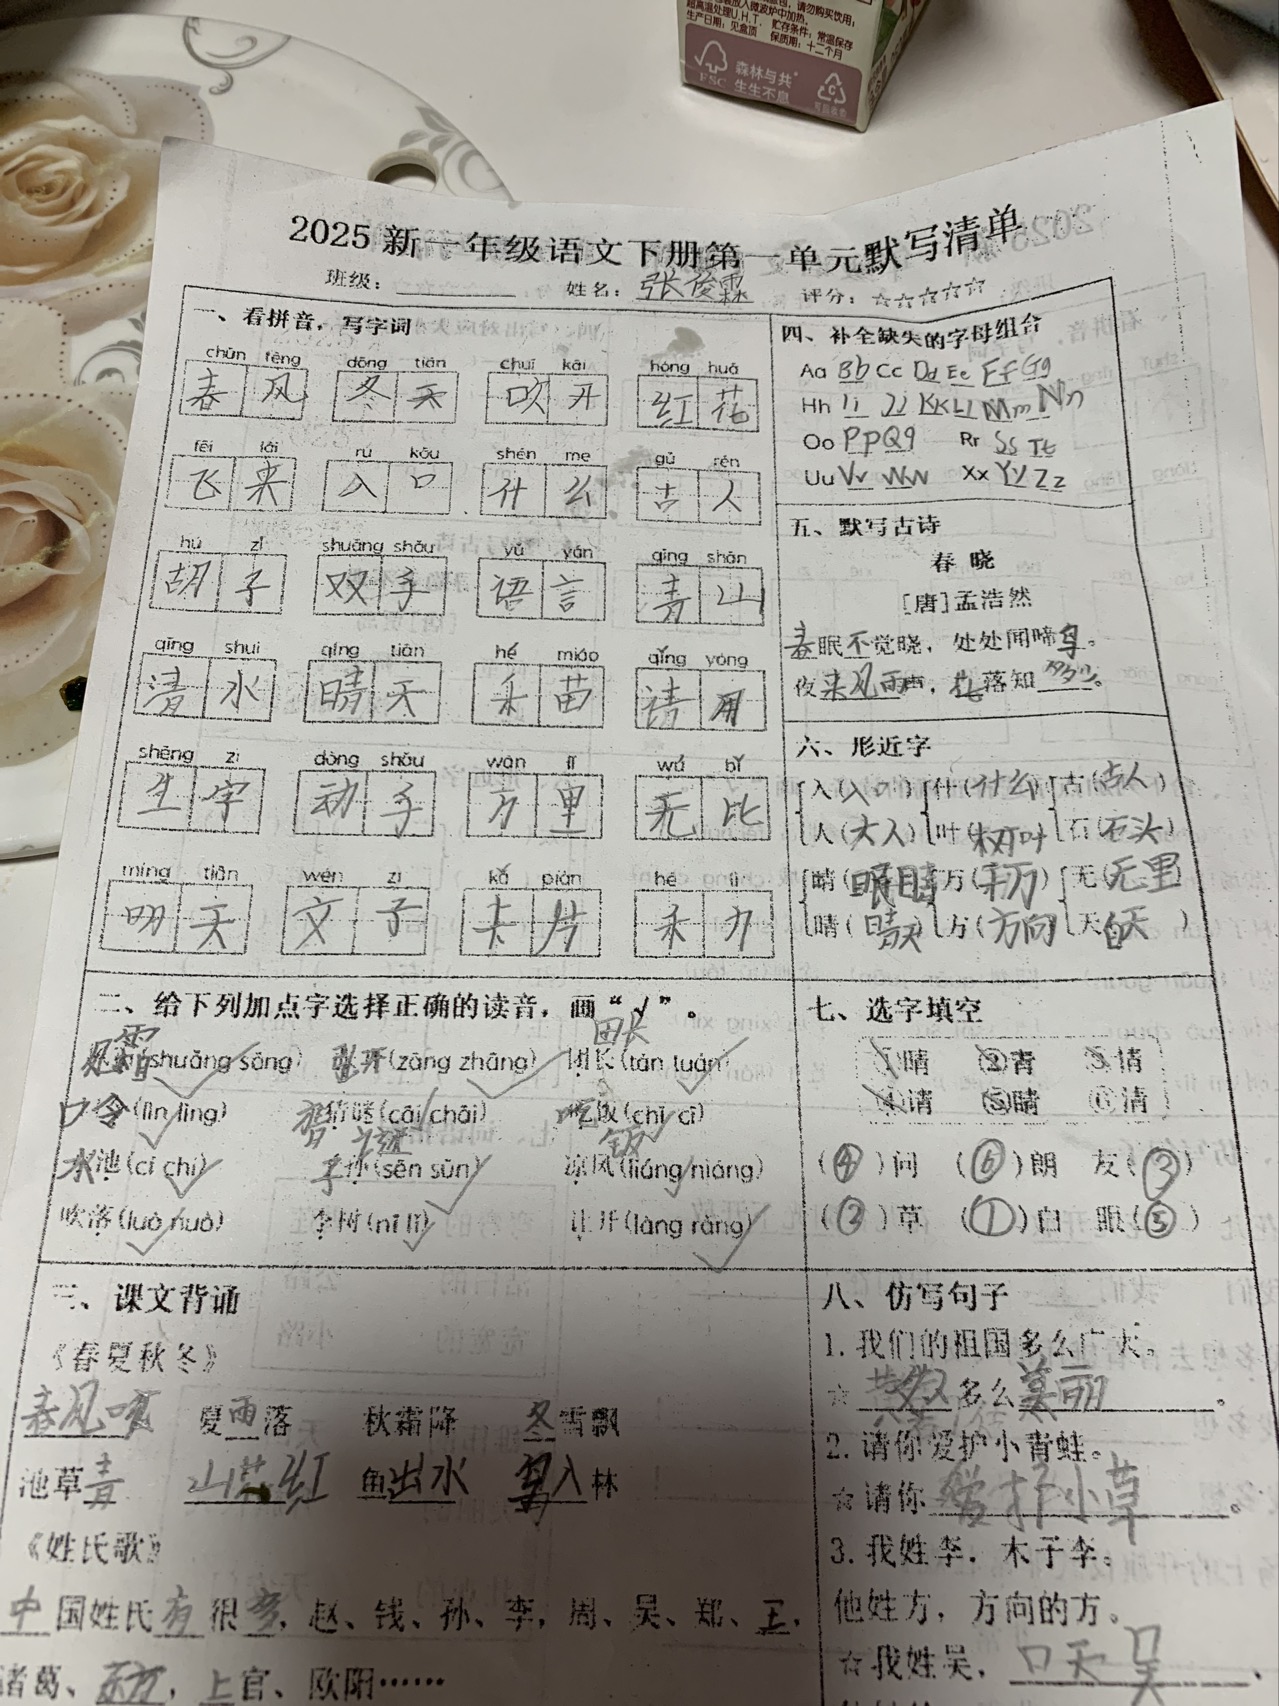 超高温处理U.H.T. 贮存条件：常温保存
生产日期：见盒顶 保质期：十二个月
FSC 森林与共
生生不息
2025 新一年级语文下册第一单元默写清单
班级： 姓名：张俊霖 评分：☆☆☆☆☆
一、看拼音，写字词
chūn fēng dōng tiān chuī kāi hóng huā
春风 冬天 吹开 红花
fēi lái rù kǒu shén me gǔ rén
飞来 入口 什么 古人
hú zǐ shuāng shǒu yǔ yán qīng shān
胡子 双手 语言 青山
qīng shuǐ qíng tiān hé miáo qǐng yòng
清水 晴天 禾苗 请用
shēng zì dòng shǒu wàn lǐ wú bǐ
生字 动手 万里 无比
míng tiān wén zì kǎ piàn hé lì
明天 文子 卡片 禾力
二、给下列加点字选择正确的读音，画“√”。
(shuāng sōng) 张开(zāng zhāng) 团长(tán tuán)
田长
口令(lìn lìng) 猜谜(cāi chāi) 吃饭(chī cī)
水池(cí chí) 子孙(sēn sūn) 凉风(liáng niáng)
吹落(luò nuò) 李树(nǐ lǐ) 让开(làng ràng)
三、课文背诵
《春夏秋冬》
春风吹 夏雨落 秋霜降 冬雪飘
池草青 山花红 鱼出水 鸟入林
《姓氏歌》
中国姓氏有很多，赵、钱、孙、李，周、吴、郑、王，
诸葛、，上官、欧阳……
四、补全缺失的字母组合
Aa Bb Cc Dd Ee Ff Gg
Hh Ii Jj Kk Ll Mm Nn
Oo Pp Qq Rr Ss Tt
Uu Vv Ww Xx Yy Zz
五、默写古诗
春晓
[唐]孟浩然
春眠不觉晓，处处闻啼鸟。
夜来风雨声，花落知多少。
六、形近字
入(入口) 什(什么) 古(古人)
人(大人) 叶(树叶) 石(石头)
睛(眼睛) 万(千万) 无(无里)
晴(晴天) 方(方向) 天(白天)
七、选字填空
①晴 ②青 ③情
④请 ⑤睛 ⑥清
(④)问 (⑥)朗 友(③)
(②)草 (①)白 眼(⑤)
八、仿写句子
1. 我们的祖国多么广大。
☆多么美丽。
2. 请你爱护小青蛙。
☆请你爱护小草。
3. 我姓李，木子李。
他姓方，方向的方。
☆我姓吴，口天吴。